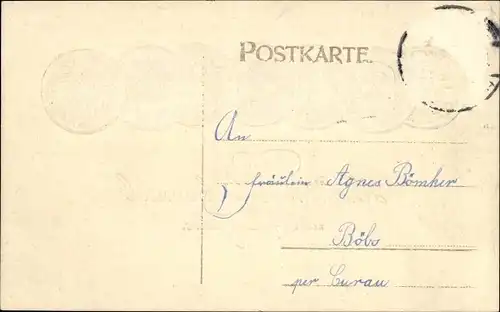 POSTKARTE.
An
Fräulein Agnes Bömker
Böbs
per. Curau